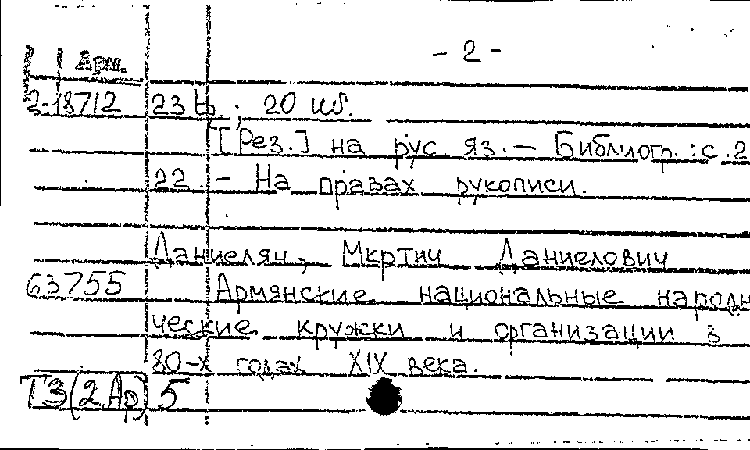 - 2 -
Арм.
2-18712 23 Ь ; 20 ил.
[Рез.] на рус яз. — Библиогр.: с. 2
22 - На правах рукописи.
Даниелян, Мкртич Даниелович
63755 Армянские национальные народн
ческие кружки и организации в
80-х годах XIX века.
Т3(2Ар)5